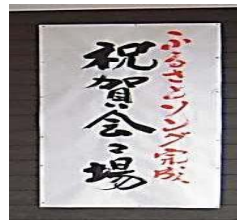 ふるさとソング完成
祝賀会々場